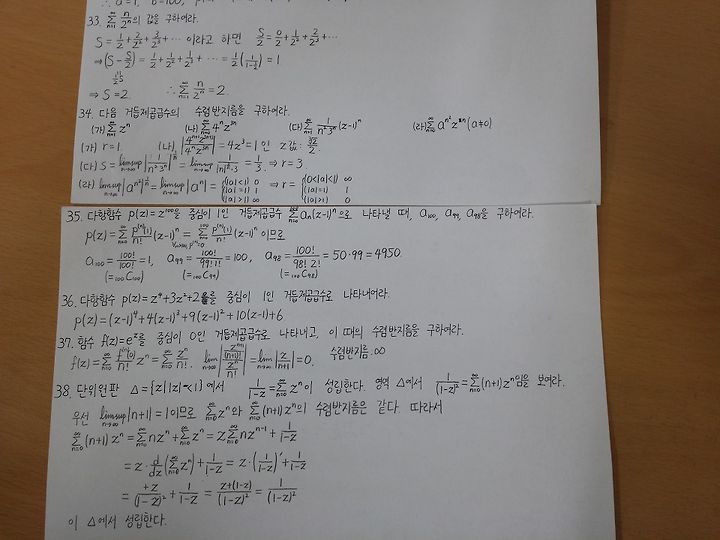 ∴ a=1, b=100,
33. ∑_{n=1}^{∞} n/2ⁿ의 값을 구하여라.
S = 1/2 + 2/2² + 3/2³ + ⋯ 이라고 하면 S/2 = 0/2 + 1/2² + 2/2³ + ⋯
⇒ (S - S/2) = 1/2 + 1/2² + 1/2³ + ⋯ = 1/2 (1/(1-1/2)) = 1
= 1/2 S
⇒ S = 2. ∴ ∑_{n=1}^{∞} n/2ⁿ = 2.
34. 다음 거듭제곱급수의 수렴반지름을 구하여라.
(가) ∑_{n=1}^{∞} zⁿ (나) ∑_{n=0}^{∞} 4ⁿz³ⁿ (다) ∑_{n=1}^{∞} 1/(n²3ⁿ) (z-1)ⁿ (라) ∑_{n=0}^{∞} a^{n²}zⁿ (a≠0)
(가) r=1. (나) = 4z³ = 1 인 z값:
(다) S = limsup_{n→∞} |1/(n²·3ⁿ)|^{1/n} = limsup_{n→∞} = 1/3. ⇒ r=3
(라) limsup_{n→∞} |a^{n²}|^{1/n} = limsup_{n→∞} |aⁿ| = {(|a|<1) 0 (|a|=1) 1 (|a|>1) ∞ ⇒ r = {(0<|a|<1) ∞ (|a|=1) 1 (|a|>1) 0
35. 다항함수 p(z)=z¹⁰⁰을 중심이 1인 거듭제곱급수 ∑_{n=0}^{∞} aₙ(z-1)ⁿ으로 나타낼 때, a₁₀₀, a₉₉, a₉₈을 구하여라.
p(z) = ∑_{n=0}^{∞} p⁽ⁿ⁾(1)/n! (z-1)ⁿ = ∑_{n=0}^{100} p⁽ⁿ⁾(1)/n! (z-1)ⁿ 이므로
a₁₀₀ = 100!/100! = 1, a₉₉ = 100!/(99!1!) = 100, a₉₈ = 100!/(98!2!) = 50·99 = 4950.
(=₁₀₀C₁₀₀) (=₁₀₀C₉₉) (=₁₀₀C₉₈)
36. 다항함수 p(z)=z⁴+3z²+2를 중심이 1인 거듭제곱급수로 나타내어라.
p(z)=(z-1)⁴+4(z-1)³+9(z-1)²+10(z-1)+6
37. 함수 f(z)=e^z를 중심이 0인 거듭제곱급수로 나타내고, 이 때의 수렴반지름을 구하여라.
f(z) = ∑_{n=0}^{∞} f⁽ⁿ⁾(0)/n! zⁿ = ∑_{n=0}^{∞} zⁿ/n!. lim_{n→∞} |(zⁿ⁺¹/(n+1)!)/(zⁿ/n!)| = lim_{n→∞} |z/(n+1)| = 0. 수렴반지름: ∞
38. 단위원판 Δ={z | |z|<1}에서 1/(1-z) = ∑_{n=0}^{∞} zⁿ이 성립한다. 영역 Δ에서 1/(1-z)² = ∑_{n=0}^{∞} (n+1)zⁿ임을 보여라.
우선 limsup_{n→∞} |n+1| = 1이므로 ∑_{n=0}^{∞} zⁿ와 ∑_{n=0}^{∞} (n+1)zⁿ의 수렴반지름은 같다. 따라서
∑_{n=0}^{∞} (n+1)zⁿ = ∑_{n=0}^{∞} nzⁿ + ∑_{n=0}^{∞} zⁿ = z∑_{n=0}^{∞} nzⁿ⁻¹ + 1/(1-z)
= z·d/dz (∑_{n=0}^{∞} zⁿ) + 1/(1-z) = z·(1/(1-z))' + 1/(1-z)
= +z/(1-z)² + 1/(1-z) = (z+(1-z))/(1-z)² = 1/(1-z)²
이 Δ에서 성립한다.